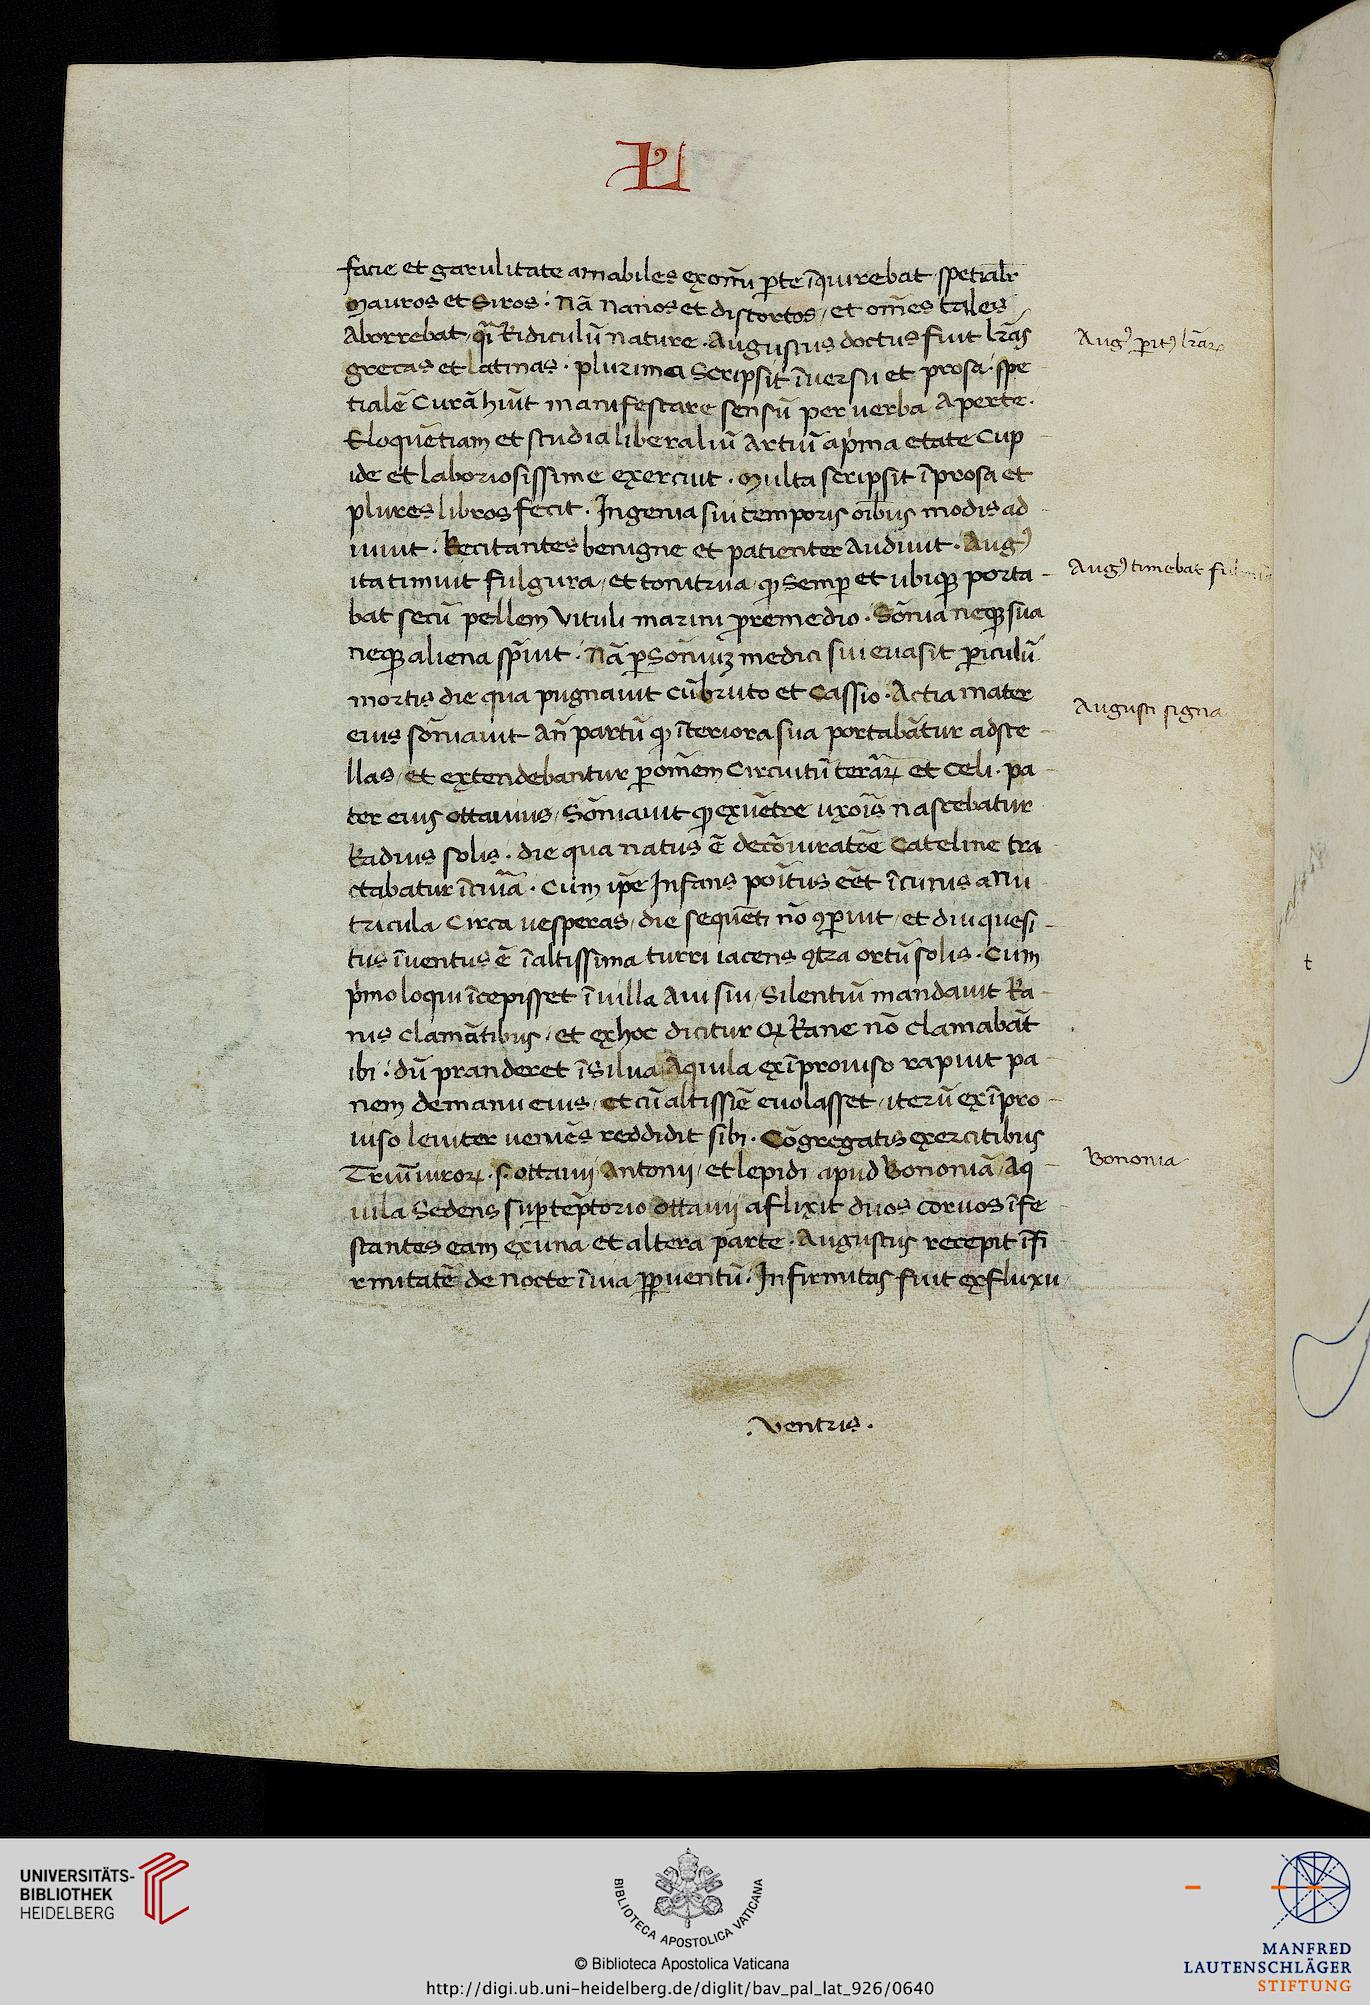 L
facie et garulitate amabiles exom̄i ꝑte īquirebat · spetialr̄
Mauros et Siros · Nā nanos et distortos / et om̄es tales
Aborrebat / q̄i Ridiculū nature · Augustus doctus fuit lr̄as
Augꝰ ꝑitꝰ lr̄aꝝ
grecas et latinas · plurima Scripsit ī versu et prosa · spe
tialē Curā hūit manifestare sensū per verba Aperte ·
Eloquētiam et studia liberaliū Artiū a p̄ma etate Cup
ide et laboriosissime exercuit · Multa scripsit ī prosa et
plures libros fecit · Ingenia sui temporis oībus modis ad
iuuit · Recitantes benigne et patienter Audiuit · Augꝰ
ita timuit fulgura / et tonitrua / ꝙ Semꝑ et ubiqꝫ porta
Augꝰ timebat
bat secū pellem vituli marini ꝓ remedio · Sōnia neqꝫ sua
neqꝫ aliena sp̄uit · Nā ꝑ Sōniuꝫ medici sui euasit ꝑiculū
mortis die qua pugnauit cū bruto et Cassio · Actia mater
Augusti signa
eius sōniauit An̄ partū ꝙ īteriora sua portabātur ad ste
llas / et extendebantur ꝑ om̄em Circuitū terāꝝ et Celi · pa
ter eius ottauius / Sōniauit ꝙ ex uētre uxoris nascebatur
Radius solis · die qua natus ē de cōiuratōe Cateline tra
ctabatur ī curia · Cum ip̄e Infans poītus eēt ī cunis a nu
tricula Circa uesperas / die sequēti nō ꝯꝑuit / et diu quesi
tus īuentus ē ī altissima turri iacens ꝯtra ortū solis · Cum
p̄mo loqui īcepisset ī uilla Aui sui / Silentiū mandauit Ra
nis clamātibus / et ex hoc dicitur ꝙ Rane nō clamabāt
ibi · dū pranderet ī Silua Aquila ex īprouiso rapuit pa
nem de manu eius / et cū altissīe euolasset / iterū ex īpro
uiso leuiter ueniēs reddidit sibi · Cōgregatis exercitibus
Triūuiroꝝ · s · ottauij Antonij / et lepidi apud Bononiā / Aq
Bononia
uila Sedens suꝑ tēptorio ottauij aflixit duos coruos īfe
stantes eam ex una et altera parte · Augustus recepit īfi
rmitatē de nocte ī uia ꝓꝑ uentū · Infirmitas fuit ex fluxu
· Ventris ·
t
UNIVERSITÄTS-
BIBLIOTHEK
HEIDELBERG
BIBLIOTECA APOSTOLICA VATICANA
© Biblioteca Apostolica Vaticana
http://digi.ub.uni-heidelberg.de/diglit/bav_pal_lat_926/0640
MANFRED
LAUTENSCHLÄGER
STIFTUNG